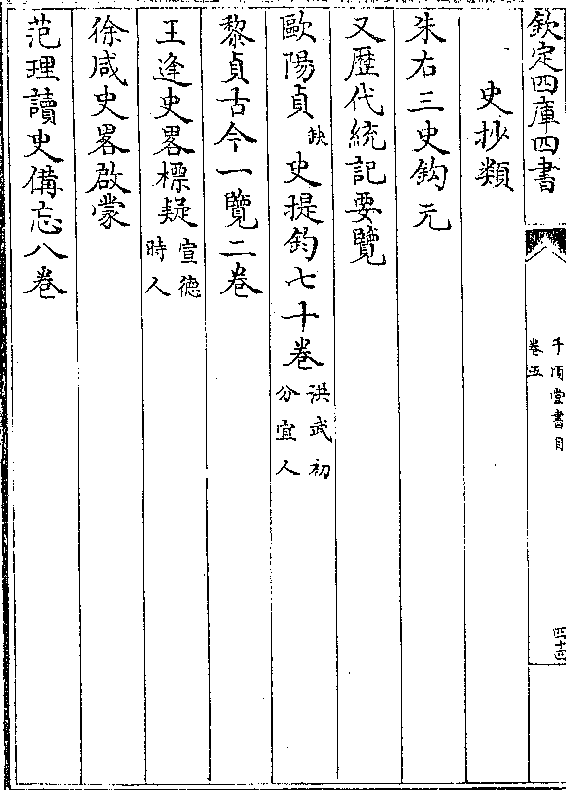 欽定四庫四書
千頃堂書目
卷五
史抄類
朱右三史鈎元
又歷代統記要覽
歐陽貞缺史提鈞七十卷洪武初分宜人
黎貞古今一覽二卷
王逢史畧標疑宣德時人
徐咸史畧啟蒙
范理讀史備忘八卷